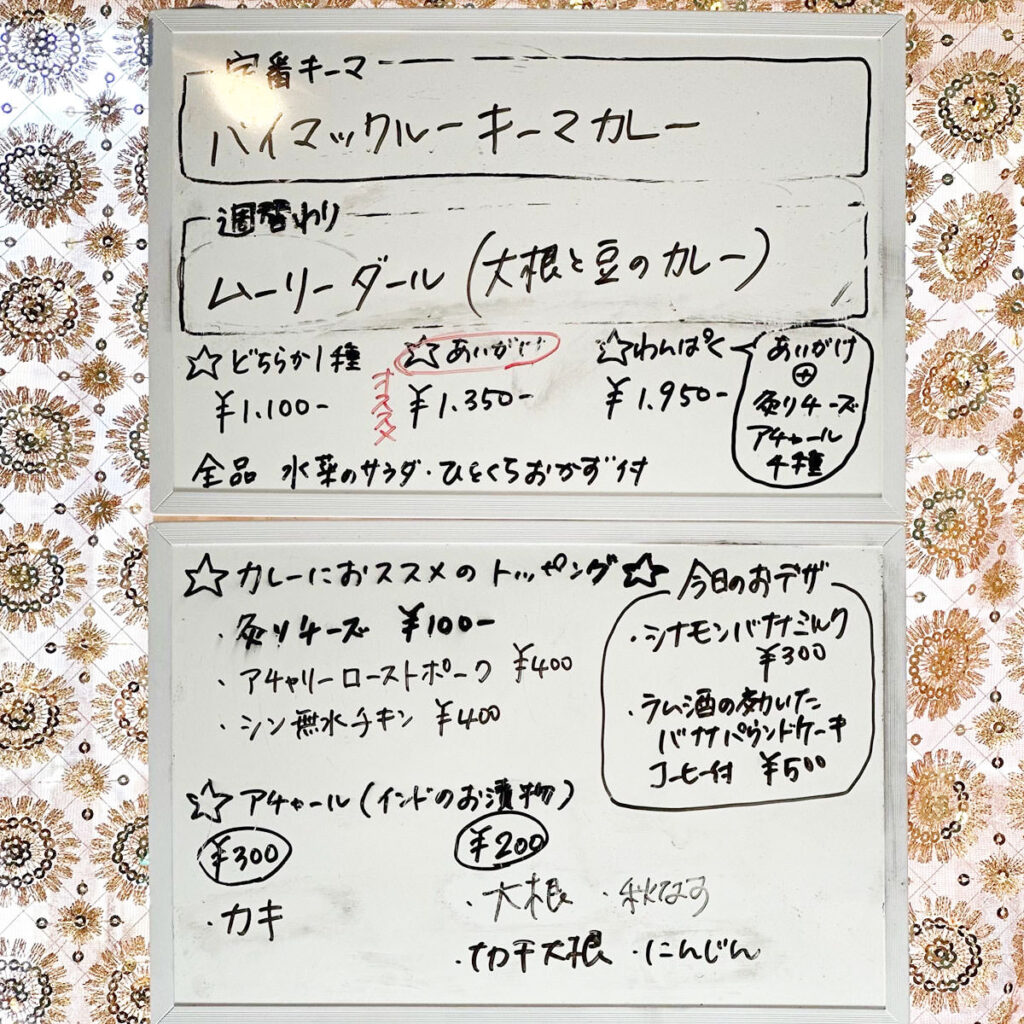 定番キーマ
バイマックルーキーマカレー
週替わり
ムーリーダール(大根と豆のカレー)
☆どちらか1種
¥1.100-
☆あいがけ
オススメ
¥1.350-
☆わんぱく
¥1.950-
あいがけ
⊕
炙りチーズ
アチャール
4種
全品 水菜のサラダ・ひとくちおかず付
☆カレーにおススメのトッピング☆
・炙りチーズ ¥100-
・アチャリーローストポーク ¥400
・シン無水チキン ¥400
今日のおデザ
・シナモンバナナミルク
¥300
・ラム酒の効いた
バナナパウンドケーキ
コーヒー付 ¥500
☆アチャール(インドのお漬物)
¥300
・カキ
¥200
・大根 ・秋なす
・切干大根 ・にんじん